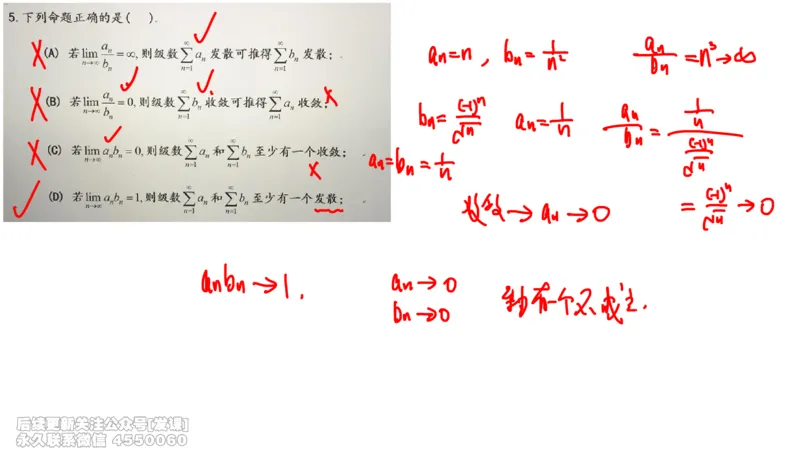 5.下列命题正确的是( ).
(A) 若lim n→∞ aₙ/bₙ=∞,则级数∑ n=1 ∞ aₙ发散可推得∑ n=1 ∞ bₙ发散;
(B) 若lim n→∞ aₙ/bₙ=0,则级数∑ n=1 ∞ bₙ收敛可推得∑ n=1 ∞ aₙ收敛;
(C) 若lim n→∞ aₙbₙ=0,则级数∑ n=1 ∞ aₙ和∑ n=1 ∞ bₙ至少有一个收敛;
(D) 若lim n→∞ aₙbₙ=1,则级数∑ n=1 ∞ aₙ和∑ n=1 ∞ bₙ至少有一个发散;
aₙ=n, bₙ=1/n² aₙ/bₙ=n³→∞
bₙ=(-1)ⁿ/√n aₙ=1/n aₙ/bₙ=(1/n)/((-1)ⁿ/√n)
aₙ=bₙ=1/n
收敛→aₙ→0 =(-1)ⁿ/√n→0
aₙbₙ→1,
aₙ→0
bₙ→0
有一个不成立.
后续更新关注公众号[发课]
永久联系微信 4550060